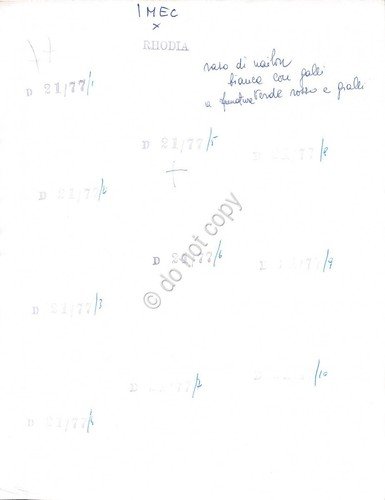 IMEC
x
RHODIA
raso di nailon
bianca con galli
a puntura verde rosso e gialli
D 21/77/1
D 21/77/5
D 21/77/8
D 21/77/2
D 21/77/6
D 21/77/9
© do not copy
D 21/77/3
D 21/77/7
/10
D 21/77/4